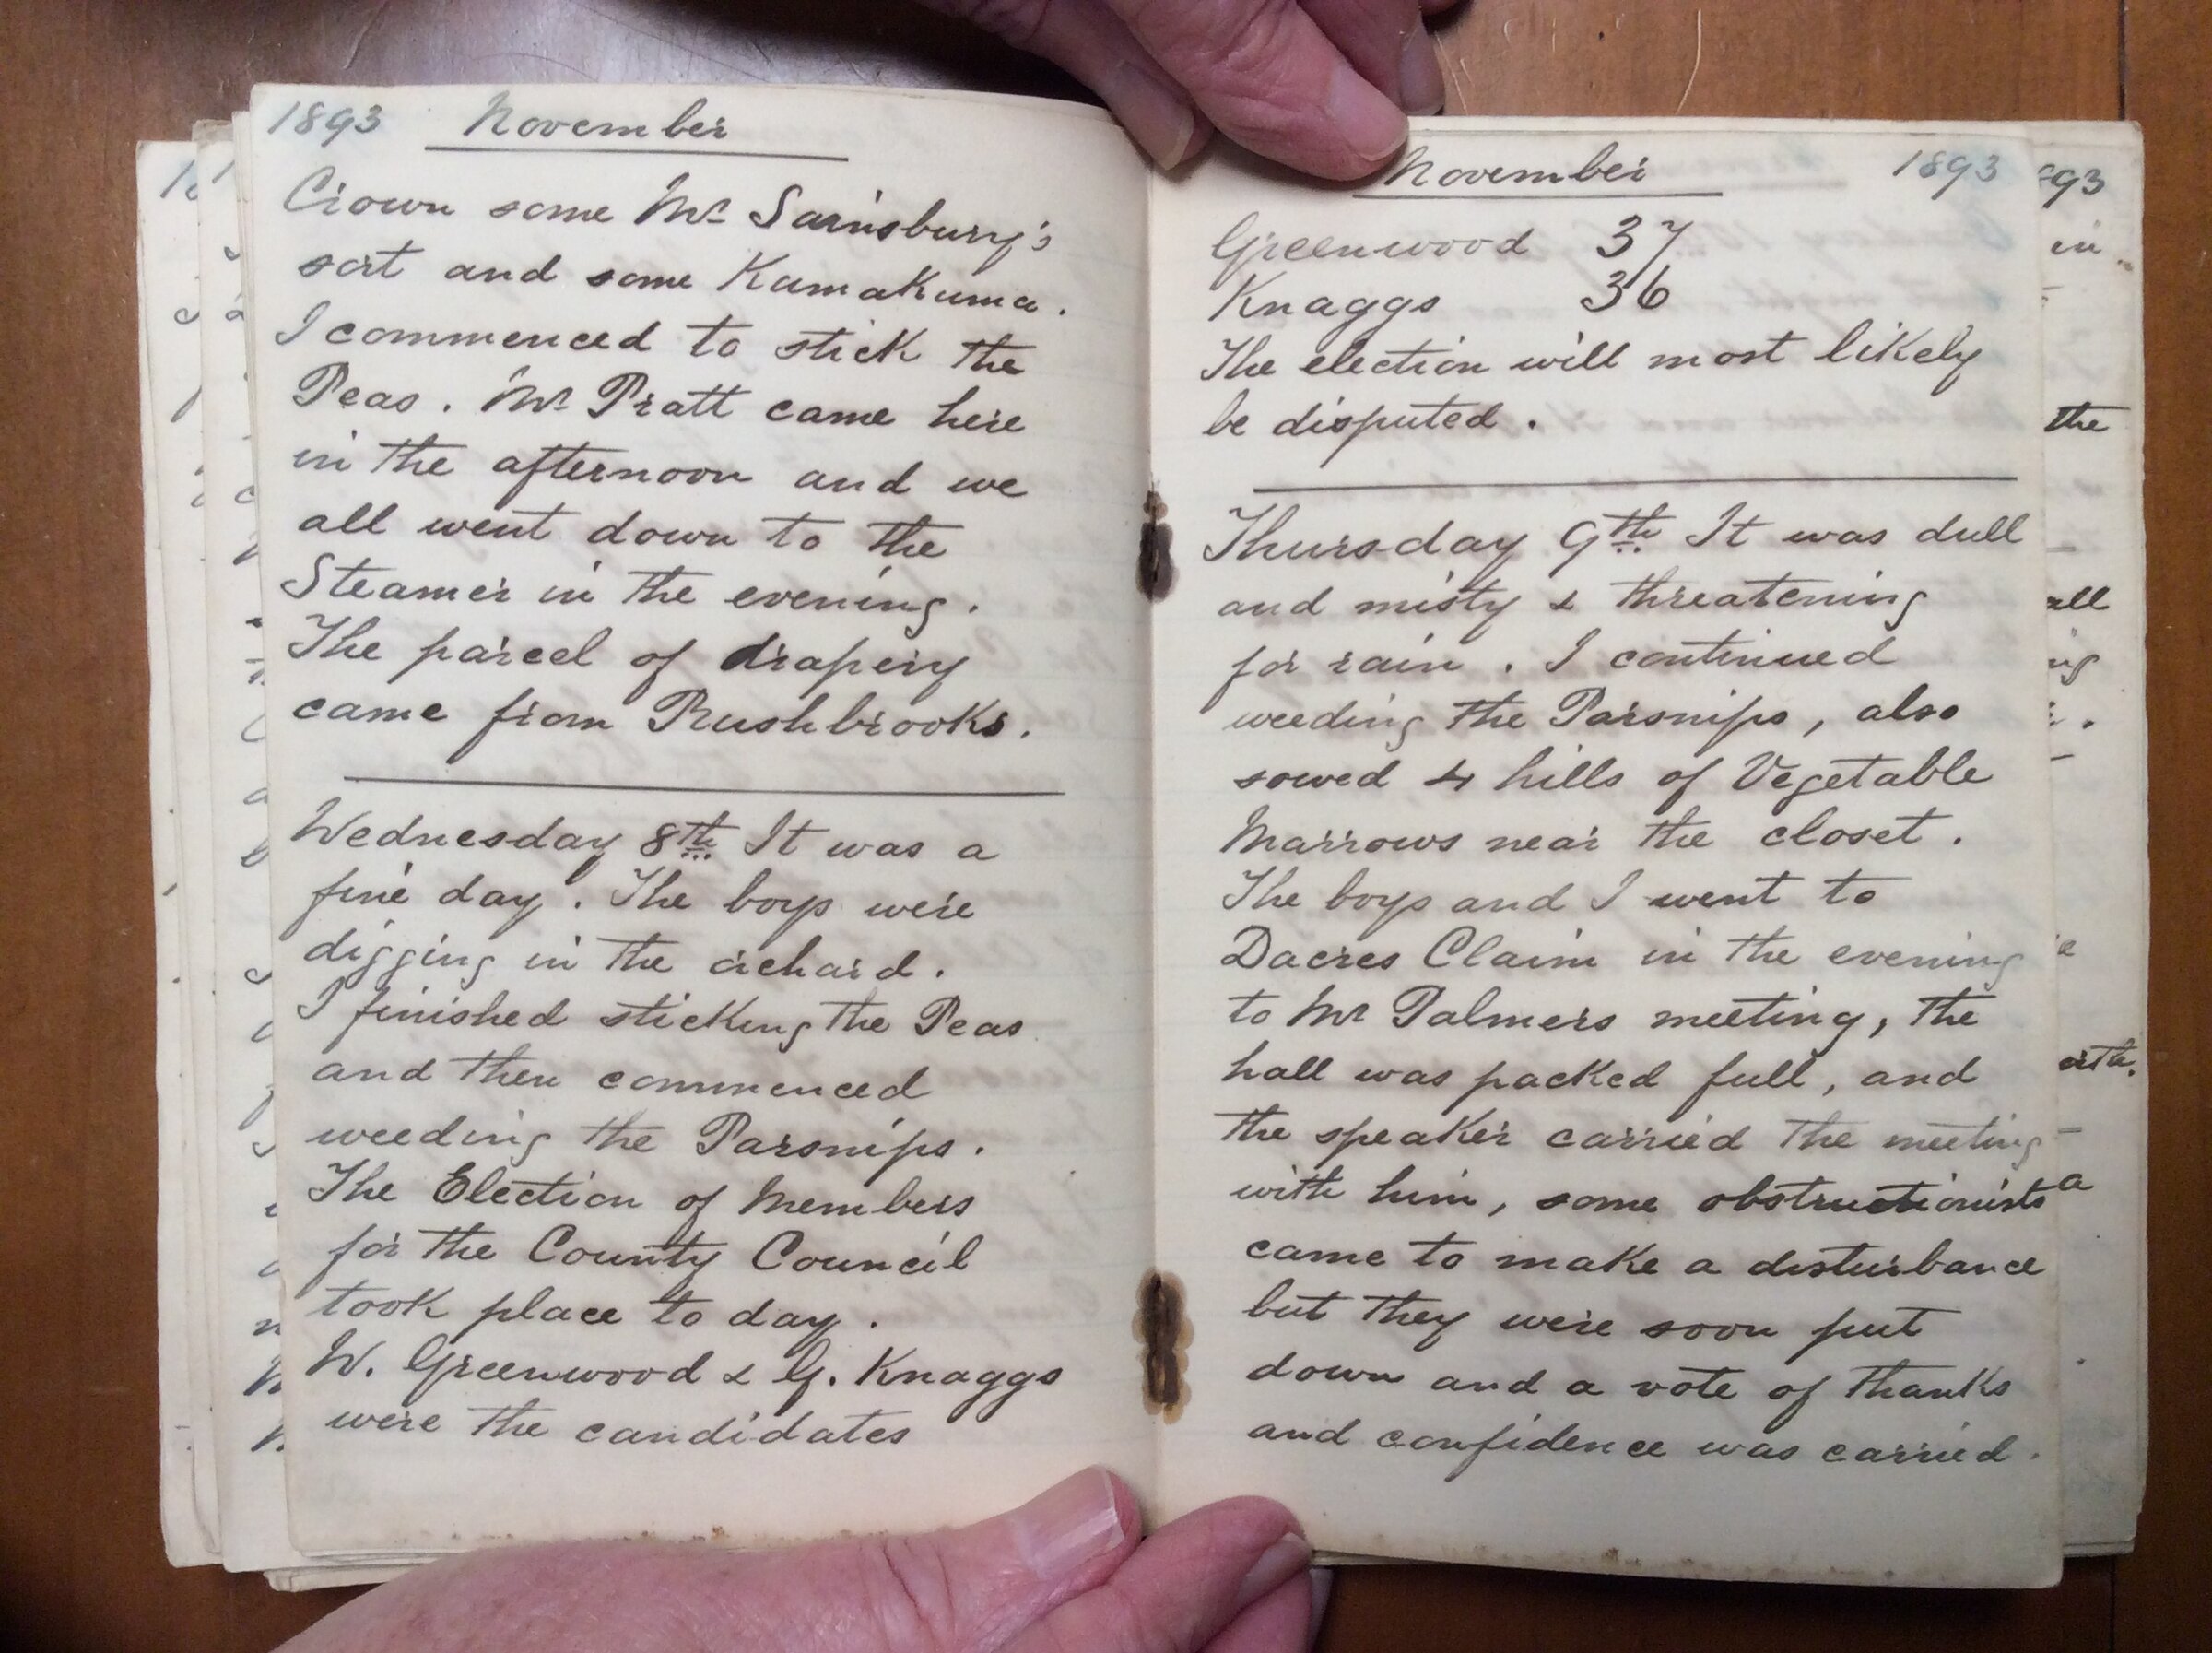 1893 November
Crown some Mr Sainsbury's
sort and some Kumakuma.
I commenced to stick the
Peas. Mr Pratt came here
in the afternoon and we
all went down to the
Steamer in the evening.
The parcel of drapery
came from Rushbrooks.
Wednesday 8th It was a
fine day. The boys were
digging in the orchard.
I finished sticking the Peas
and then commenced
weeding the Parsnips.
The Election of Members
for the County Council
took place to day.
W. Greenwood & G. Knaggs
were the candidates
November 1893
Greenwood 37
Knaggs 36
The election will most likely
be disputed.
Thursday 9th It was dull
and misty & threatening
for rain. I continued
weeding the Parsnips, also
sowed 4 hills of Vegetable
Marrows near the closet.
The boys and I went to
Dacres Claim in the evening
to Mr Palmers meeting, the
hall was packed full, and
the speaker carried the meeting
with him, some obstructionists
came to make a disturbance
but they were soon put
down and a vote of thanks
and confidence was carried.
93
in
the